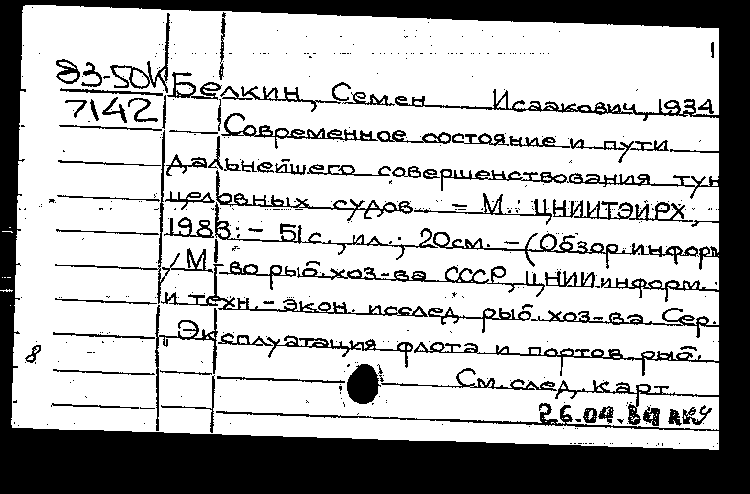 1
83-50К Белкин, Семен Исаакович, 1934
7142
Современное состояние и пути
дальнейшего совершенствования тун
целовных судов. - М.: ЦНИИТЭИРХ,
1983. - 51 с., ил.; 20 см. - (Обзор. информ
/ М-во рыб. хоз-ва СССР, ЦНИИ информ.
и техн.-экон. исслед. рыб. хоз-ва. Сер.
"Эксплуатация флота и портов рыб.
8
См. след. карт
26.04.84